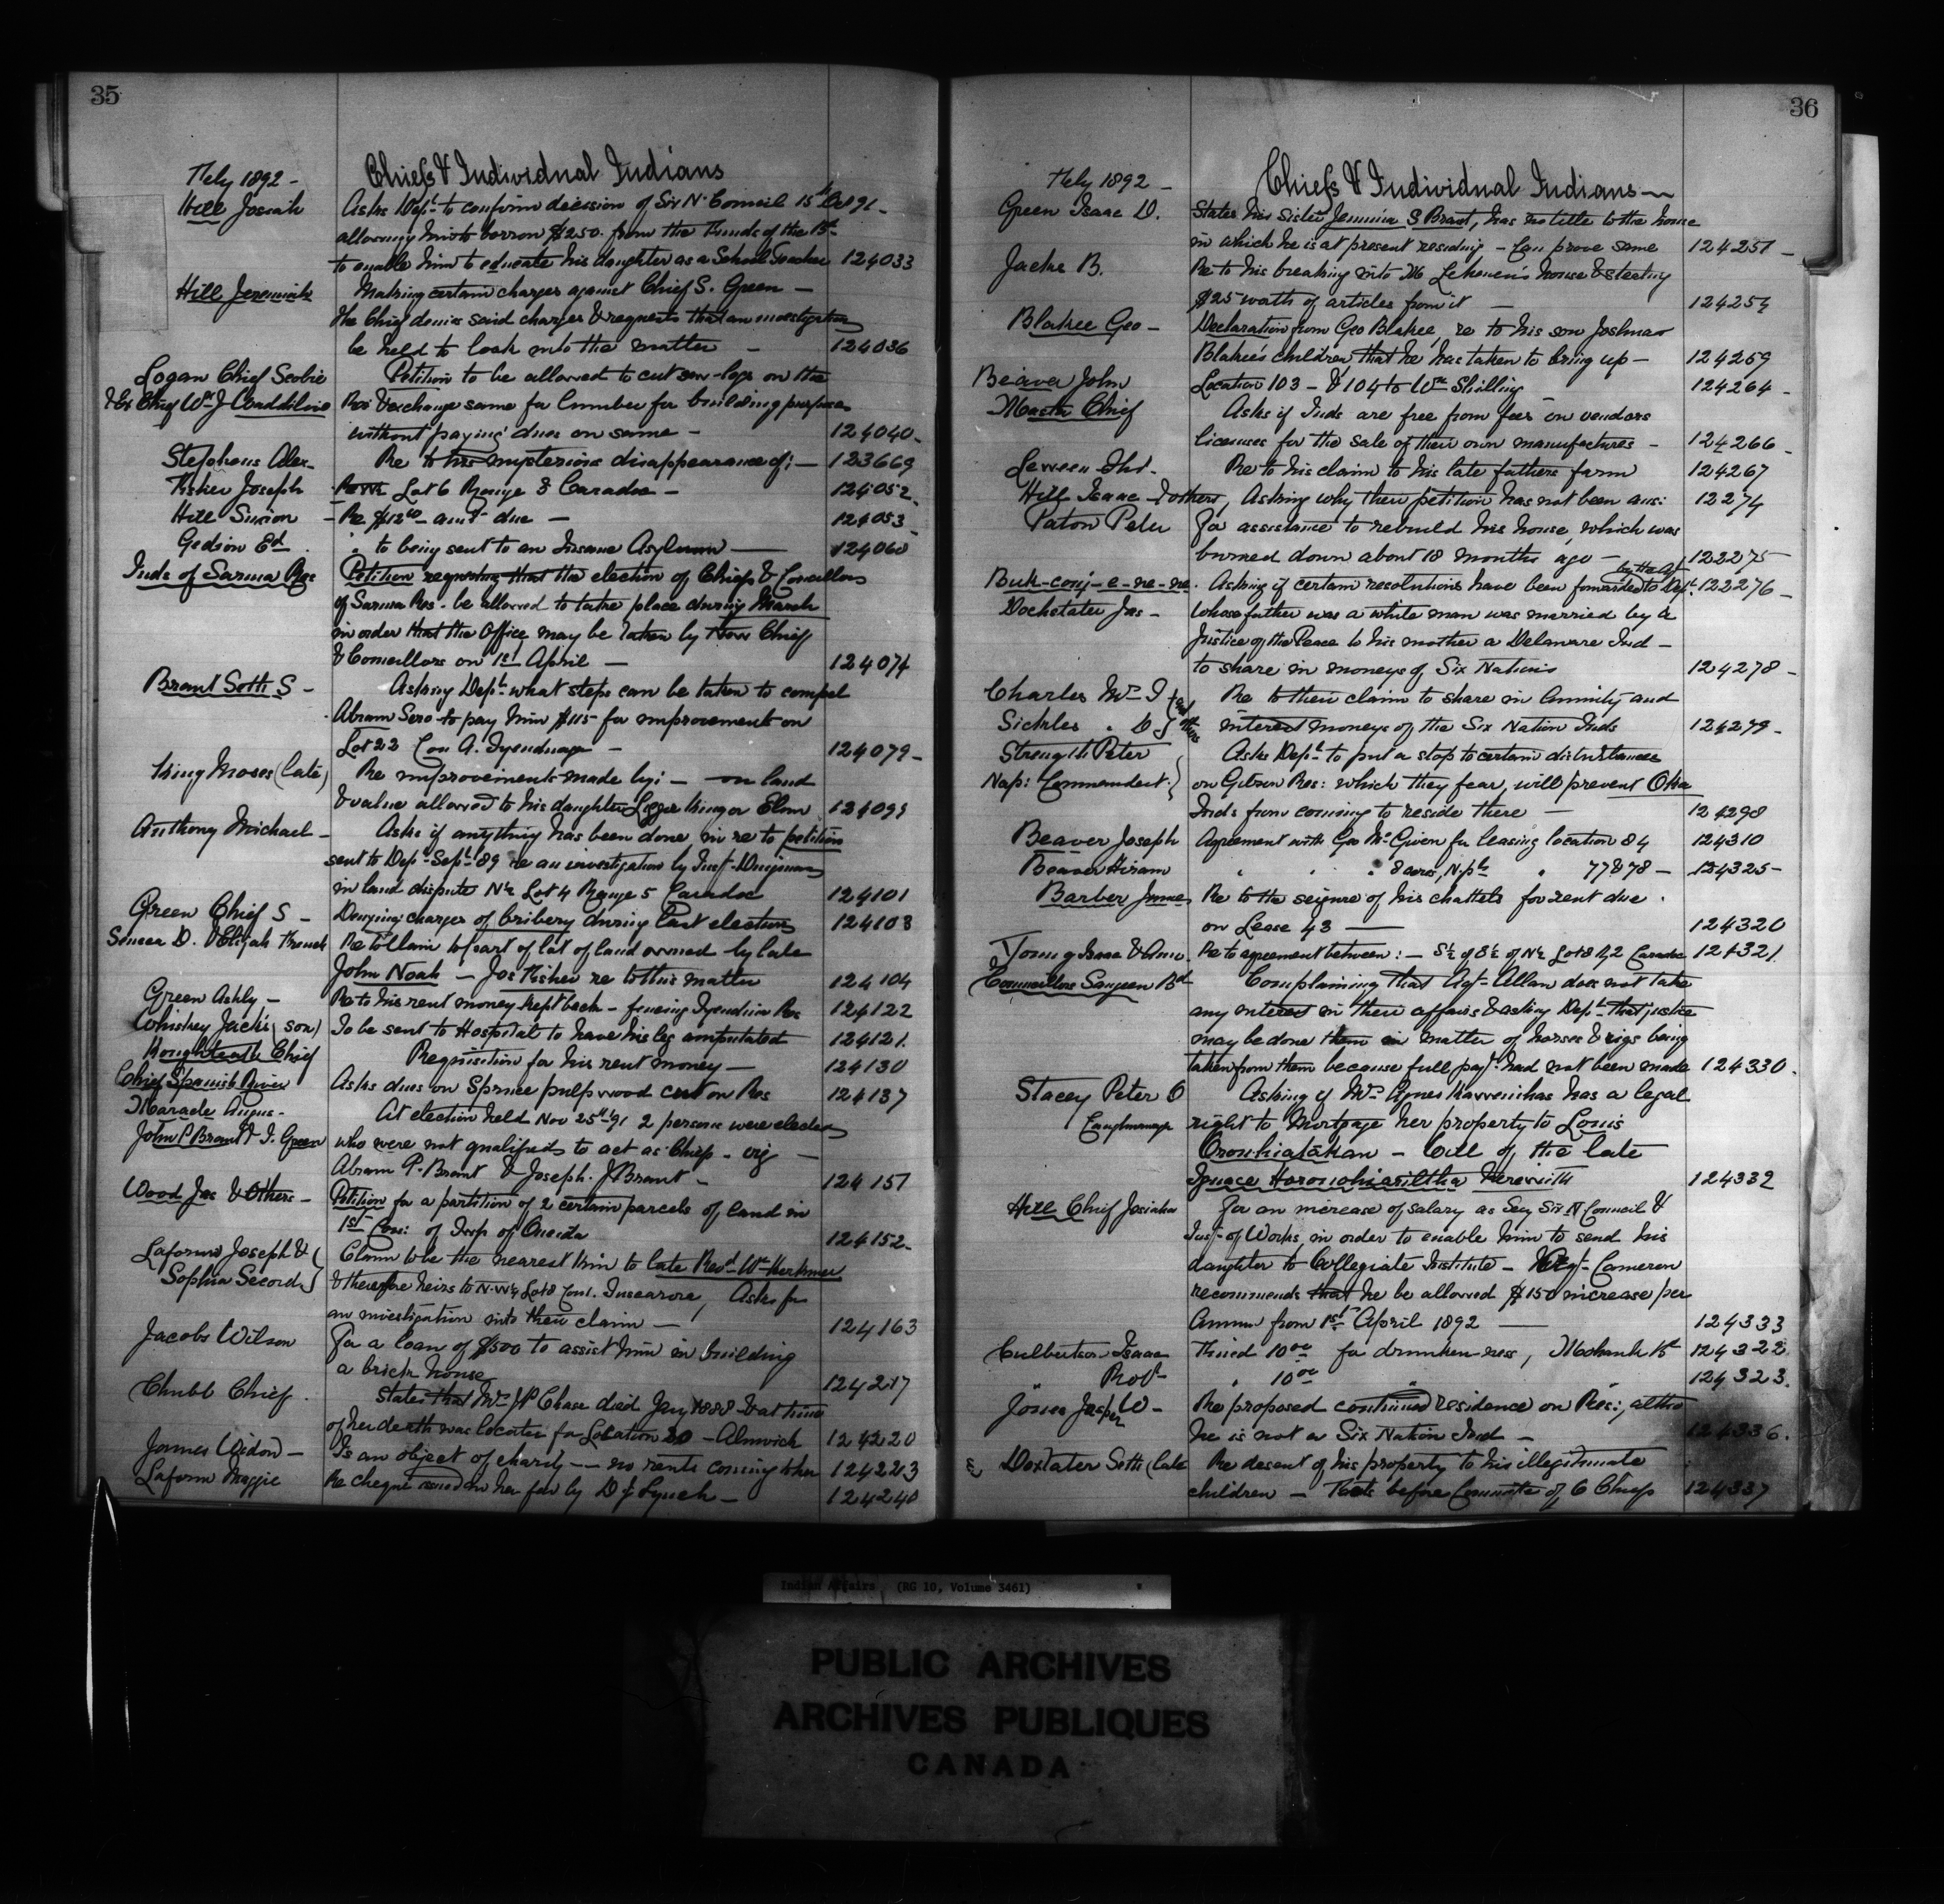 35
Feby 1892 - Chiefs & Individual Indians
Hill Josiah Asks Dept to confirm decision of Six N. Council 15th Oct 91 -
allowing him to borrow $250. from the Funds of the Bd
to enable him to educate his daughter as a School Teacher 124033
Hill Jeremiah Making certain charges against Chief S. Green -
The Chief denies said charges & requests that an investigation
be held to look into the matter - 124036
Logan Chief Scobie Petition to be allowed to cut saw-logs on the
& Ex Chief Wm J Waddilove Res & exchange same for lumber for building purposes
without paying dues on same - 124040-
Stephens Alex- Re to his mysterious disappearance of; - 123669
Fisher Joseph Lot 6 Range 3 Caradoc - 124052-
Hill Simon - Re $12 00 amt due - 124053
Gedion Ed " to being sent to an Insane Asylum - 124060
Inds of Sarnia Res Petition requesting that the election of Chiefs & Councillors
of Sarnia Res - be allowed to take place during March
in order that the Office may be taken by New Chief
& Councillors on 1st April - 124074
Brant Seth S - Asking Dept what steps can be taken to compel
Abram Sero to pay him $115 for improvements on
Lot 22 Con A. Tyendinaga - 124079-
King Moses (late) Re improvements made by: - on land
& value allowed to his daughter Lizzie King or Elm 124099
Anthony Michael - Asks if anything has been done in re to petition
sent to Dept Sept 89 re an investigation by Inst- Dingman
in land dispute N½ Lot 4 Range 5 Caradoc 124101
Green Chief S - Denying charges of bribery during last election 124103
Seneca D. & Elijah French Re to Claim to part of lot of land owned by late
John Noah - Jos Fisher re to this matter 124104
Green Ashly - Re to his rent money kept back - fencing Tyendina Res 124122
Whiskey Jack's (son) To be sent to Hospital to have his leg amputated 124121.
Chief Requisition for his rent money - 124130
Chief Spanish River Asks dues on Spruce pulpwood cut on Res 124137
Maracle Angus- At election held Nov 25th 91 2 persons were elected
John P Brant & I. Green who were not qualified to act as Chiefs - viz -
Abram P. Brant & Joseph. J Brant - 124151
Wood Jas & Others - Petition for a partition of 2 certain parcels of land in
1st Con: of Twp of Oneida 124152-
Laforme Joseph & Claim to be the nearest kin to late Revd Wm Herkimer
Sophia Secord & therefore heirs to N.W¼ Lot 8 Con 1. Tuscarora, Asks for
an investigation into their claim - 124163
Jacobs Wilson For a loan of $500 to assist him in building
a brick house 124217
Chubb Chief. States that Mrs JP Chase died Jany 1888 & at time
of her death was locatee for Location 20 - Alnwick 124220
James Widow - Is an object of charity -- no rents coming to her 124223
Laform Maggie Re cheque issued in her fav by D J Lynch - 124240
36
Feby 1892 - Chiefs & Individual Indians -
Green Isaac D. States his sister Jemima S Brant, has no title to the house
in which he is at present residing - Can prove same 124251 -
Jacks B. Re to his breaking into house & stealing
$25 worth of articles from it - 124254
Blaker Geo - Declaration from Geo Blaker, re to his son Joshua
Blaker's children that he has taken to bring up - 124259
Beaver John Location 103 - & 104 to Wm Shilling 124264 -
Master Chief Asks if Inds are free from fees on vendors
licenses for the sale of their own manufactures - 124266 -
Re to his claim to his late fathers farm 124267
Hill Isaac & others, Asking why their petition has not been ans: 12274
Paton Peter For assistance to rebuild his house, which was
burned down about 18 months ago - 122275
by the Agt
Buk-conj-e-ne-ne. Asking if certain resolutions have been forwarded to Dept: 122276 -
Dockstater Jas - Whose father was a white man was married by a
Justice of the Peace to his mother a Delaware Ind -
to share in moneys of Six Nations 124278 -
Charles Mrs I & Re to their claim to share in annuity and
Sickles " D and others interest moneys of the Six Nation Inds 124279 -
Strength Peter Asks Dept to put a stop to certain disturbances
Nap: Commandant: on Gibson Res: which they fear, will prevent Oka
Inds from coming to reside there - 124298
Beaver Joseph Agreement with Geo McGiven for leasing location 84 124310
Beaver Hiram " " " 8 acres, N.pt " 77&78 - 124325 -
Barber James Re to the seizure of his chattels for rent due.
on Lease 43 - 124320
Young Isaac & Re to agreement between: - S½ of S½ of N½ Lot 8 R,2 Caradoc 124321.
Councillors Saugeen Bd Complaining that Agt- Allan does not take
any interest in their affairs & asking Dept- that justice
may be done them in matter of horses & rigs being
taken from them because full payt had not been made 124330.
Stacey Peter O Asking if Mrs Agnes Karrenihas has a legal
Caughnawaga right to mortgage her property to Louis
Oronhiatakan - Will of the late
Ignace 124332
Hill Chief Josiah For an increase of salary as Secy Six N Council &
Inst- of Works, in order to enable him to send his
daughter to Collegiate Institute - Agt- Cameron
recommends that he be allowed $150 increase per
Annum from 1st April 1892 - 124333
Culbertson Isaac Fined 10 00 for drunken-ness, Mohawk Bd 124322.
" Robt- " 10 00 " 124323.
Jones Jasper W- Re proposed continued residence on Res:, altho
he is not a Six Nation Ind - 124336.
& Doxtater Seth (late Re desent of his property to his illegitimate
children - Took before Committe of 6 Chiefs 124337
Indian Affairs (RG 10, Volume 3461)
PUBLIC ARCHIVES
ARCHIVES PUBLIQUES
CANADA